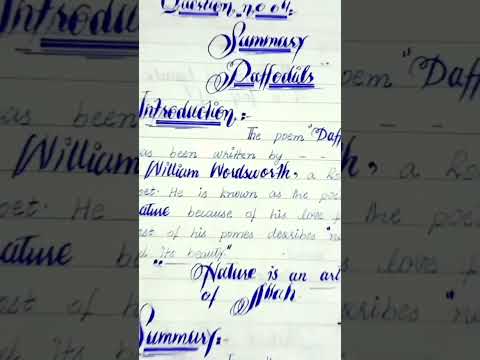 Question no 04:
Summary
"Daffodils"
Introduction:-
The poem "Daff
as been written by - -
William Wordsworth, a Ro
oet. He is known as the poe
ature because of his love f
st of his pomes describes "n
d its beauty."
"Nature is an art
of Allah
Summary:-